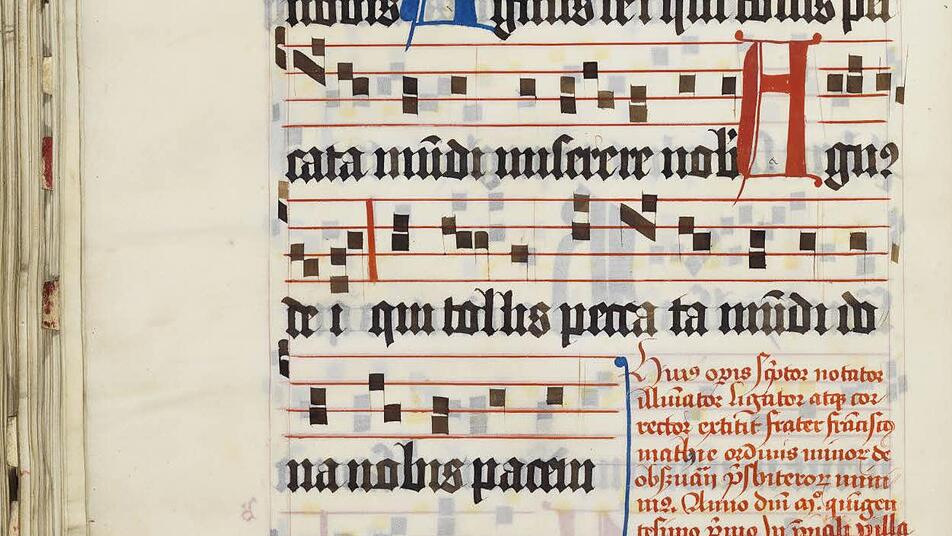 nobis Agnus dei qui tollis pec
cata mūdi miserere nobis Agnꝰ
de i qui tollis pecca ta mūdi do
na nobis pacem
Huiꝰ opis scptor notator
illuīator ligator atqꝫ cor
rector extitit frater frācisc
mathie ordinis minor de
obsīuāti psbiteror mini
mꝰ. Anno dnī mº. quigen
tesimo primo In villa